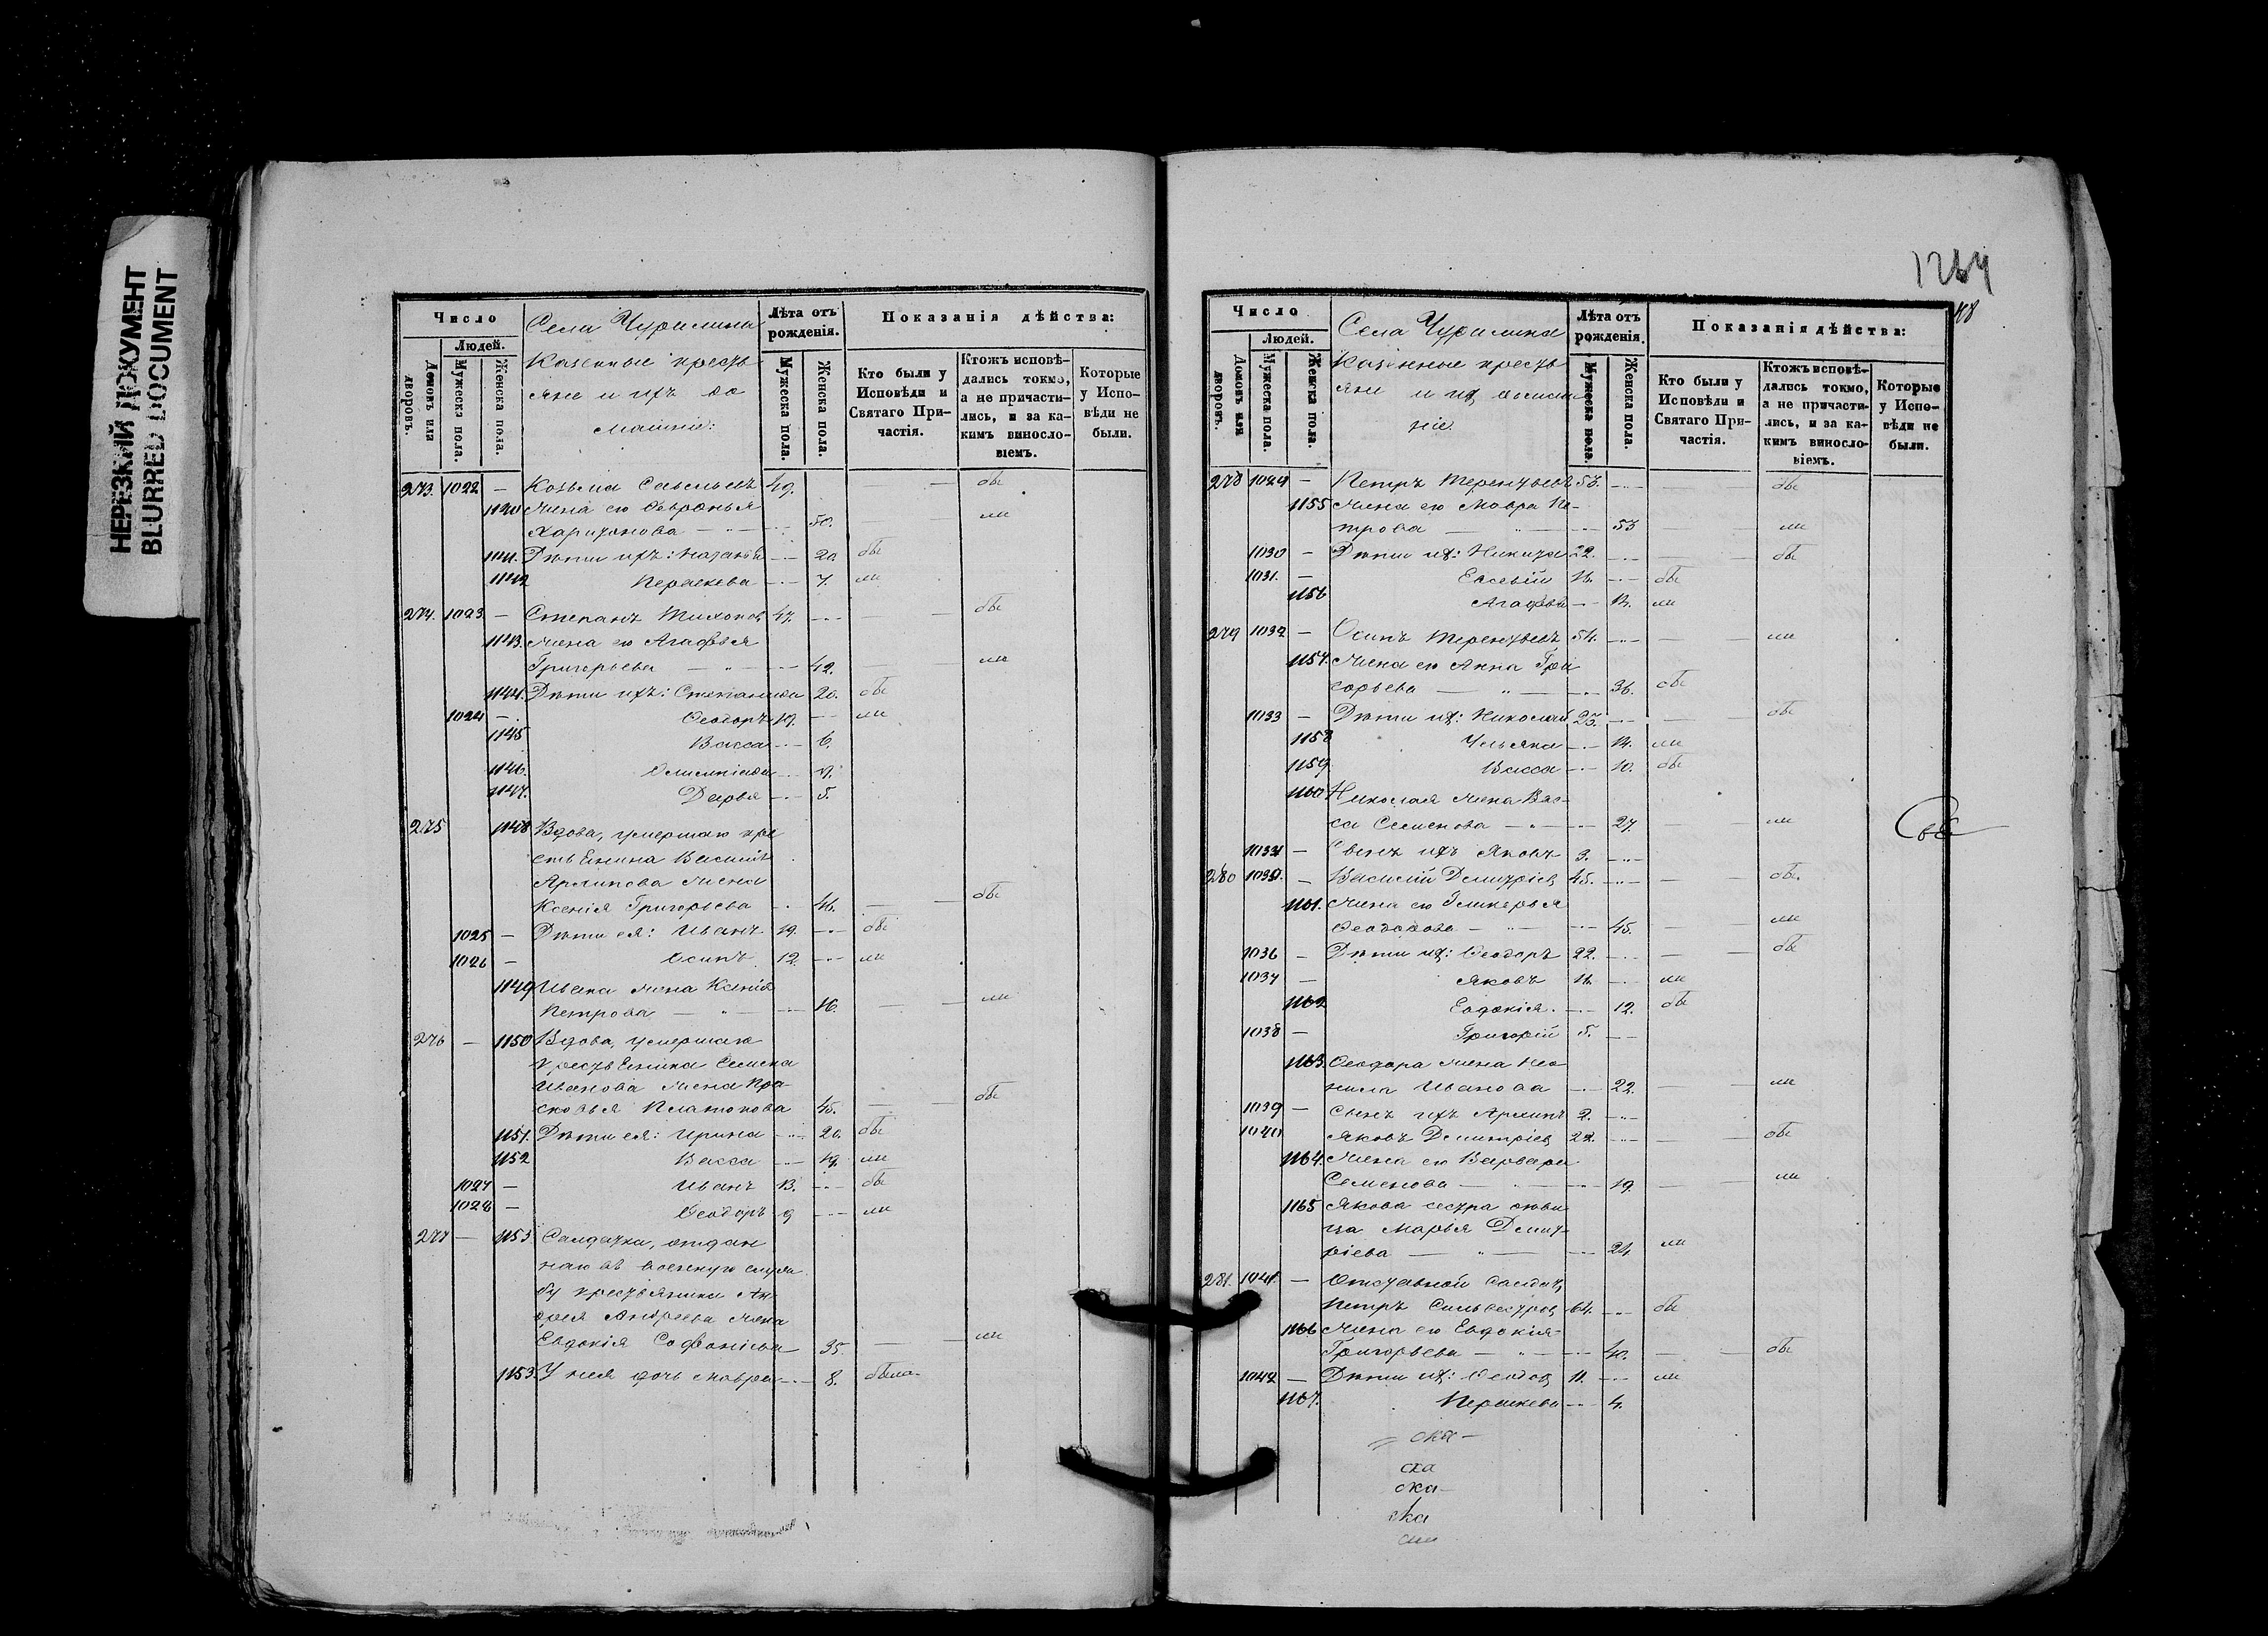 НЕРЕЗКИЙ ДОКУМЕНТ
BLURRED DOCUMENT
Число
Людей.
Домовъ или дворовъ.
Мужеска пола.
Женска пола.
Села Чурилина
Казенные кресть
яне и ихъ до
машніе:
Лѣта отъ рожденія.
Мужеска пола.
Женска пола.
Показанія дѣйства:
Кто были у Исповѣди и Святаго Причастія.
Ктожъ исповѣ-
дались токмо,
а не причасти-
лись, и за ка-
кимъ винословіемъ.
Которые у Испо-
вѣди не были.
273. 1022 — Козьма Савельевъ 49. — бы
1140 Жена его Февронья
Харитонова — 50. — ли
1141. Дѣти ихъ: Наталья — 20. бы
1142 Параскева — 7. ли
274. 1023 — Степанъ Тихоновъ 47. — бы
1143. Жена его Агафья
Григорьева — 42. — ли
1144. Дѣти ихъ: Степанида 20. бы
1024 — Ѳеодоръ 19. — ли
1145 Васса — 6.
1146. Олимпіада —
1147. Дарья — 5.
275 1148 Вдова, умершаго кре
стьянина Василья
Архипова жена
Ксенія Григорьева — 46. — бы
1025 — Дѣти ея: Иванъ 19. — бы
1026 — Осипъ 12. — ли
1149 Ивана жена Ксенія
Петрова — — ли
276 — 1150 Вдова, умершаго
крестьянина Семена
Иванова жена Пра-
сковья Платонова 45. — бы
1151. Дѣти ея: Ирина — 20. бы
1152 Васса — 19. ли
1027 — Иванъ 13. — бы
1028 — Ѳеодоръ 9 — ли
277 — 1153 Салдатка, отдан
наго въ военную служ
бу крестьянина Ан-
дрея Андреева жена
Евдокія Софоніева 35. — ли
1153. У нея дочь Мавра — 8. была
1264
Число
Людей.
Домовъ или дворовъ.
Мужеска пола.
Женска пола.
Села Чурилина
Казенные кресть
яне и ихъ домаш
ніе.
Лѣта отъ рожденія.
Мужеска пола.
Женска пола.
Показанія дѣйства:
Кто были у Исповѣди и Святаго Причастія.
Ктожъ исповѣ-
дались токмо,
а не причасти-
лись, и за ка-
кимъ винословіемъ.
Которые у Испо-
вѣди не были.
278 1029 — Петръ Терентьевъ 57. — бы
1155 Жена его Мавра Пе-
трова — 53 — ли
1030 — Дѣти ихъ: Никита 22. — бы
1031. — Евсевій — бы
1156 Агафья — ли
279 1032 — Осипъ Терентьевъ 54. — ли
1157. Жена его Анна Гри
горьева — 36. бы
1033 — Дѣти ихъ: Николай 23. — бы
1158 Ульяна — 14. ли
1159 Васса — 10. бы
1160 Николая жена Вас-
са Семенова — 27. — ли
1034 — Сынъ ихъ Яковъ 3. —
280 1035. — Василій Димитріевъ 45. — бы.
1161. Жена его Гликерья
Ѳеодорова — 45. — ли
1036 — Дѣти ихъ: Ѳеодоръ 22. — бы
1037 — Яковъ — ли
1162 Евдокія. — 12. бы
1038 — Григорій 5. —
1163. Ѳеодора жена Нео
нила Иванова — 22. — ли
1039 — Сынъ ихъ Архипъ 2. —
1040 Яковъ Димитріевъ 22. — бы
1164. Жена его Варвара
Семенова — 19. — ли
1165 Якова сестра дѣви
ца Марья Димит-
ріева — 24 ли
281. 1041. — Отставной Салдатъ
Петръ Сильвестровъ 64. — бы
1166 Жена его Евдокія
Григорьева — 40. — бы
1042 — Дѣти ихъ: Ѳеодоръ 11. — ли
1167. Параскева — 4.
ска
ска
ска
ска